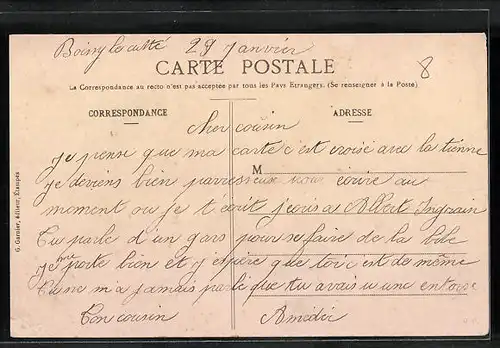 Boissy le cutté 29 Janvier
8
CARTE POSTALE
La Correspondance au recto n'est pas acceptée par tous les Pays Etrangers. (Se renseigner à la Poste)
CORRESPONDANCE
ADRESSE
cher cousin
je pense que ma carte c'est croisé avec la tienne
M
je deviens bien parresseuse pour écrire au
moment ou je t'ecrit j'ecris a Albert Ingrain
Tu parle d'un gars pour se faire de la bile
je me porte bien et j'espère que toi c'est de même
Tu ne m'a jamais parlé que tu avais u une entorse
Ton cousin Amédée
G. Garnier, éditeur, Etampes